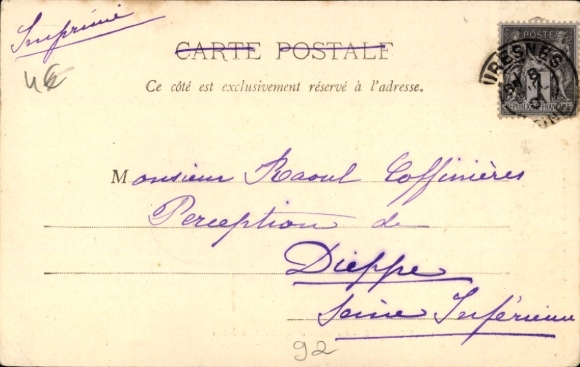 Imprimé
4€
CARTE POSTALE
Ce côté est exclusivement réservé à l'adresse.
POSTE
1
URESNES
Monsieur Raoul Coffinières
Perception de
Dieppe
Seine Inférieure
92